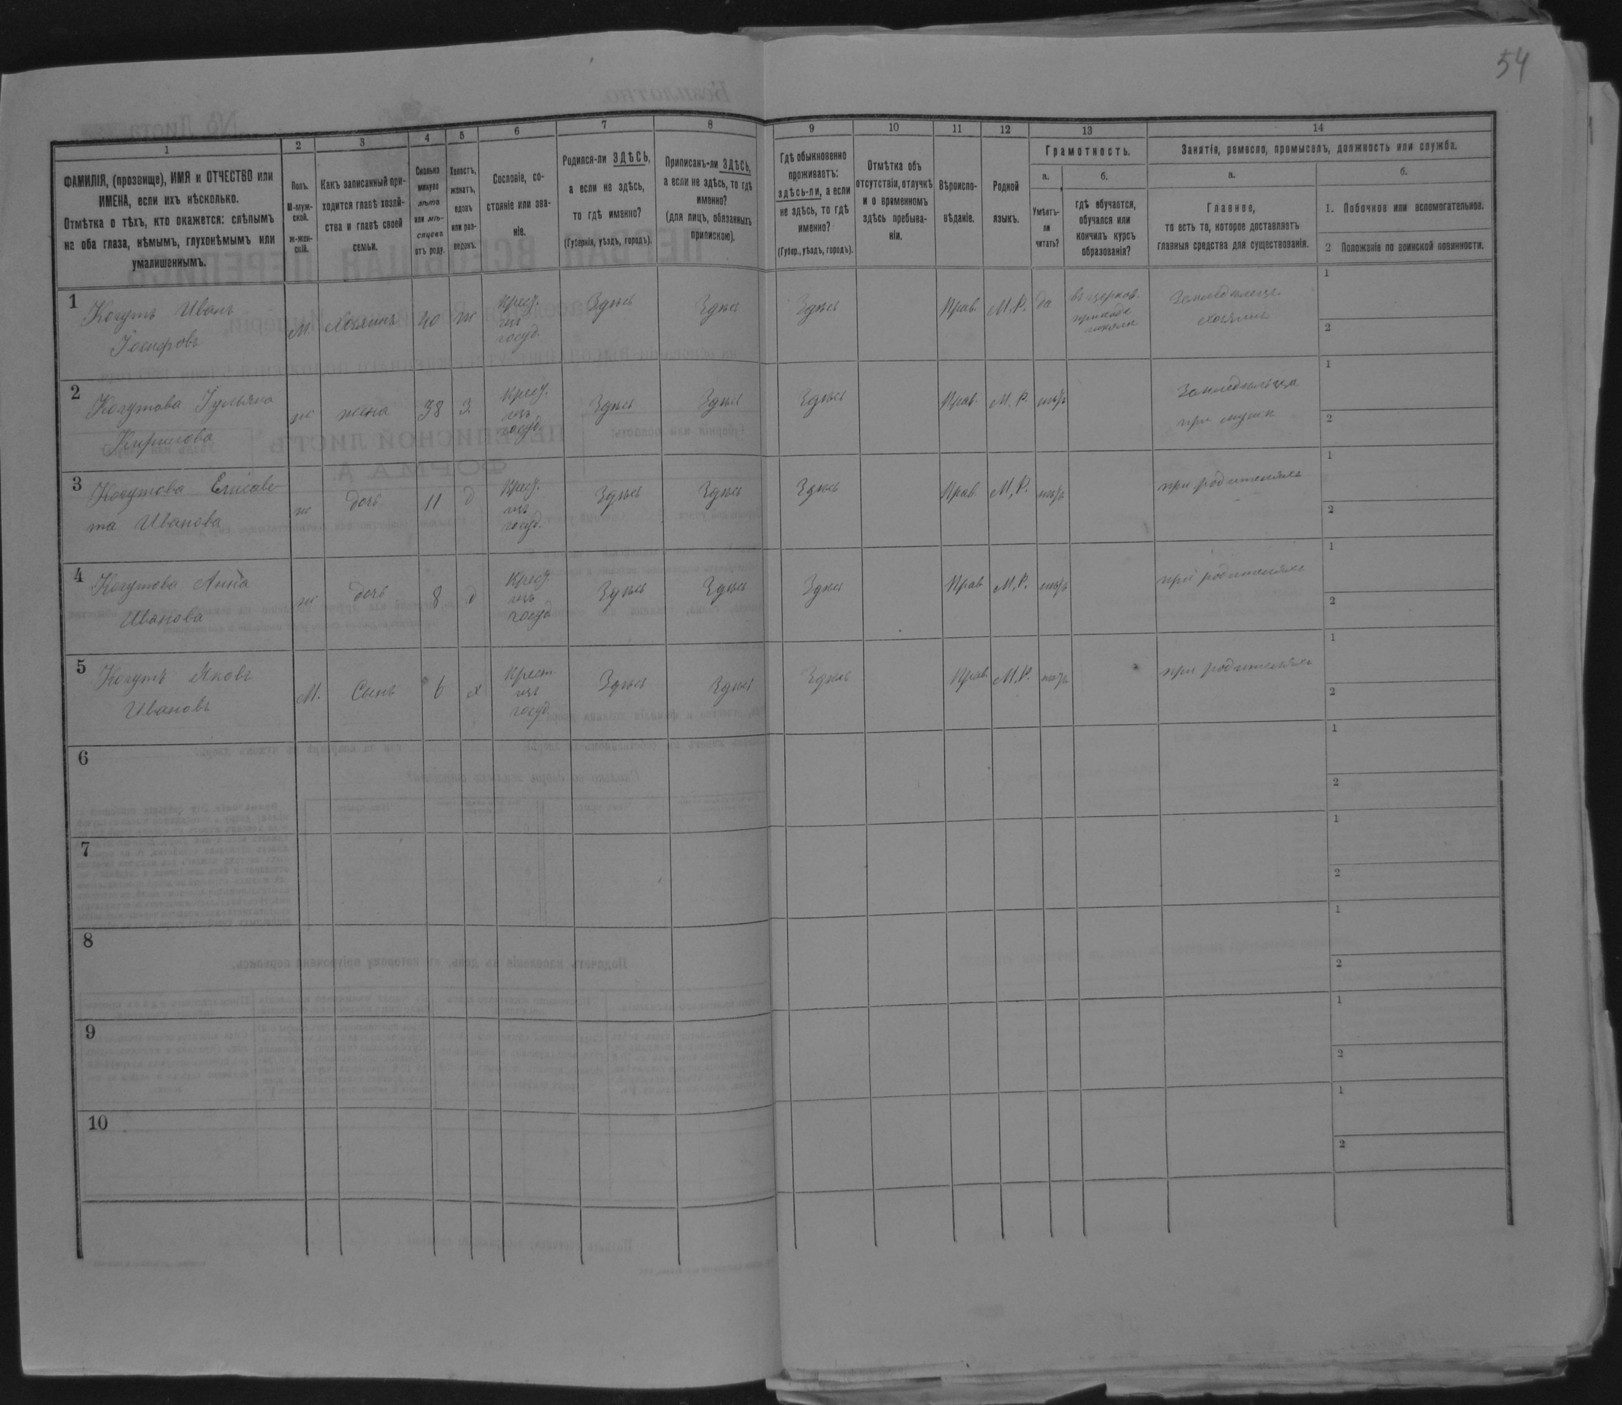 54
1
ФАМИЛІЯ, (прозвище), ИМЯ и ОТЧЕСТВО или
ИМЕНА, если ихъ нѣсколько.
Отмѣтка о тѣхъ, кто окажется: слѣпымъ
на оба глаза, нѣмымъ, глухонѣмымъ или
умалишеннымъ.
2
Полъ.
М-муж-
ской.
Ж-жен-
скій.
3
Какъ записанный при-
ходится главѣ хозяй-
ства и главѣ своей
семьи.
4
Сколько
минуло
лѣтъ
или мѣ-
сяцевъ
отъ роду.
5
Холостъ,
женатъ,
вдовъ
или раз-
веденъ.
6
Сословіе, со-
стояніе или зва-
ніе.
7
Родился-ли ЗДѢСЬ,
а если не здѣсь,
то гдѣ именно?
(Губернія, уѣздъ, городъ).
8
Приписанъ-ли ЗДѢСЬ,
а если не здѣсь, то гдѣ
именно?
(для лицъ, обязанныхъ
припискою).
9
Гдѣ обыкновенно
проживаетъ:
здѣсь-ли, а если
не здѣсь, то гдѣ
именно?
(Губер., уѣздъ, городъ).
10
Отмѣтка объ
отсутствіи, отлучкѣ
и о временномъ
здѣсь пребыва-
ніи.
11
Вѣроиспо-
вѣданіе.
12
Родной
языкъ.
13
Грамотность.
а.
Умѣетъ-
ли
читать?
б.
гдѣ обучается,
обучался или
кончилъ курсъ
образованія?
14
Занятіе, ремесло, промыселъ, должность или служба.
а.
Главное,
то есть то, которое доставляетъ
главныя средства для существованія.
б.
1. Побочное или вспомогательное.
2 Положеніе по воинской повинности.
1
Когутъ Иванъ
Іосифовъ
М. Хозяинъ 40 ж
Крест.
изъ
госуд.
Здѣсь Здѣсь Здѣсь Прав. М.Р. да
въ церков.
приходс
школѣ
Земледѣлецъ
хозяинъ
1
2
2
Когутова Іульяна
Кирилова
ж жена 38 з.
Крест.
изъ
госуд.
Здѣсь Здѣсь Здѣсь Прав. М.Р. нѣтъ
Земледѣлица
при мужѣ
1
2
3
Когутова Елисаве-
та Иванова
ж дочь 11 д
Крест.
изъ
госуд.
Здѣсь Здѣсь Здѣсь Прав. М.Р. нѣтъ при родителяхъ
1
2
4
Когутова Анна
Иванова
ж дочь 8 д
Крест.
изъ
госуд.
Здѣсь Здѣсь Здѣсь Прав М.Р. нѣтъ при родителяхъ
1
2
5
Когутъ Яковъ
Ивановъ
М. Сынъ 6 х
Крест.
изъ
госуд.
Здѣсь Здѣсь Здѣсь Прав М.Р. нѣтъ при родителяхъ
1
2
6
1
2
7
1
2
8
1
2
9
1
2
10
1
2